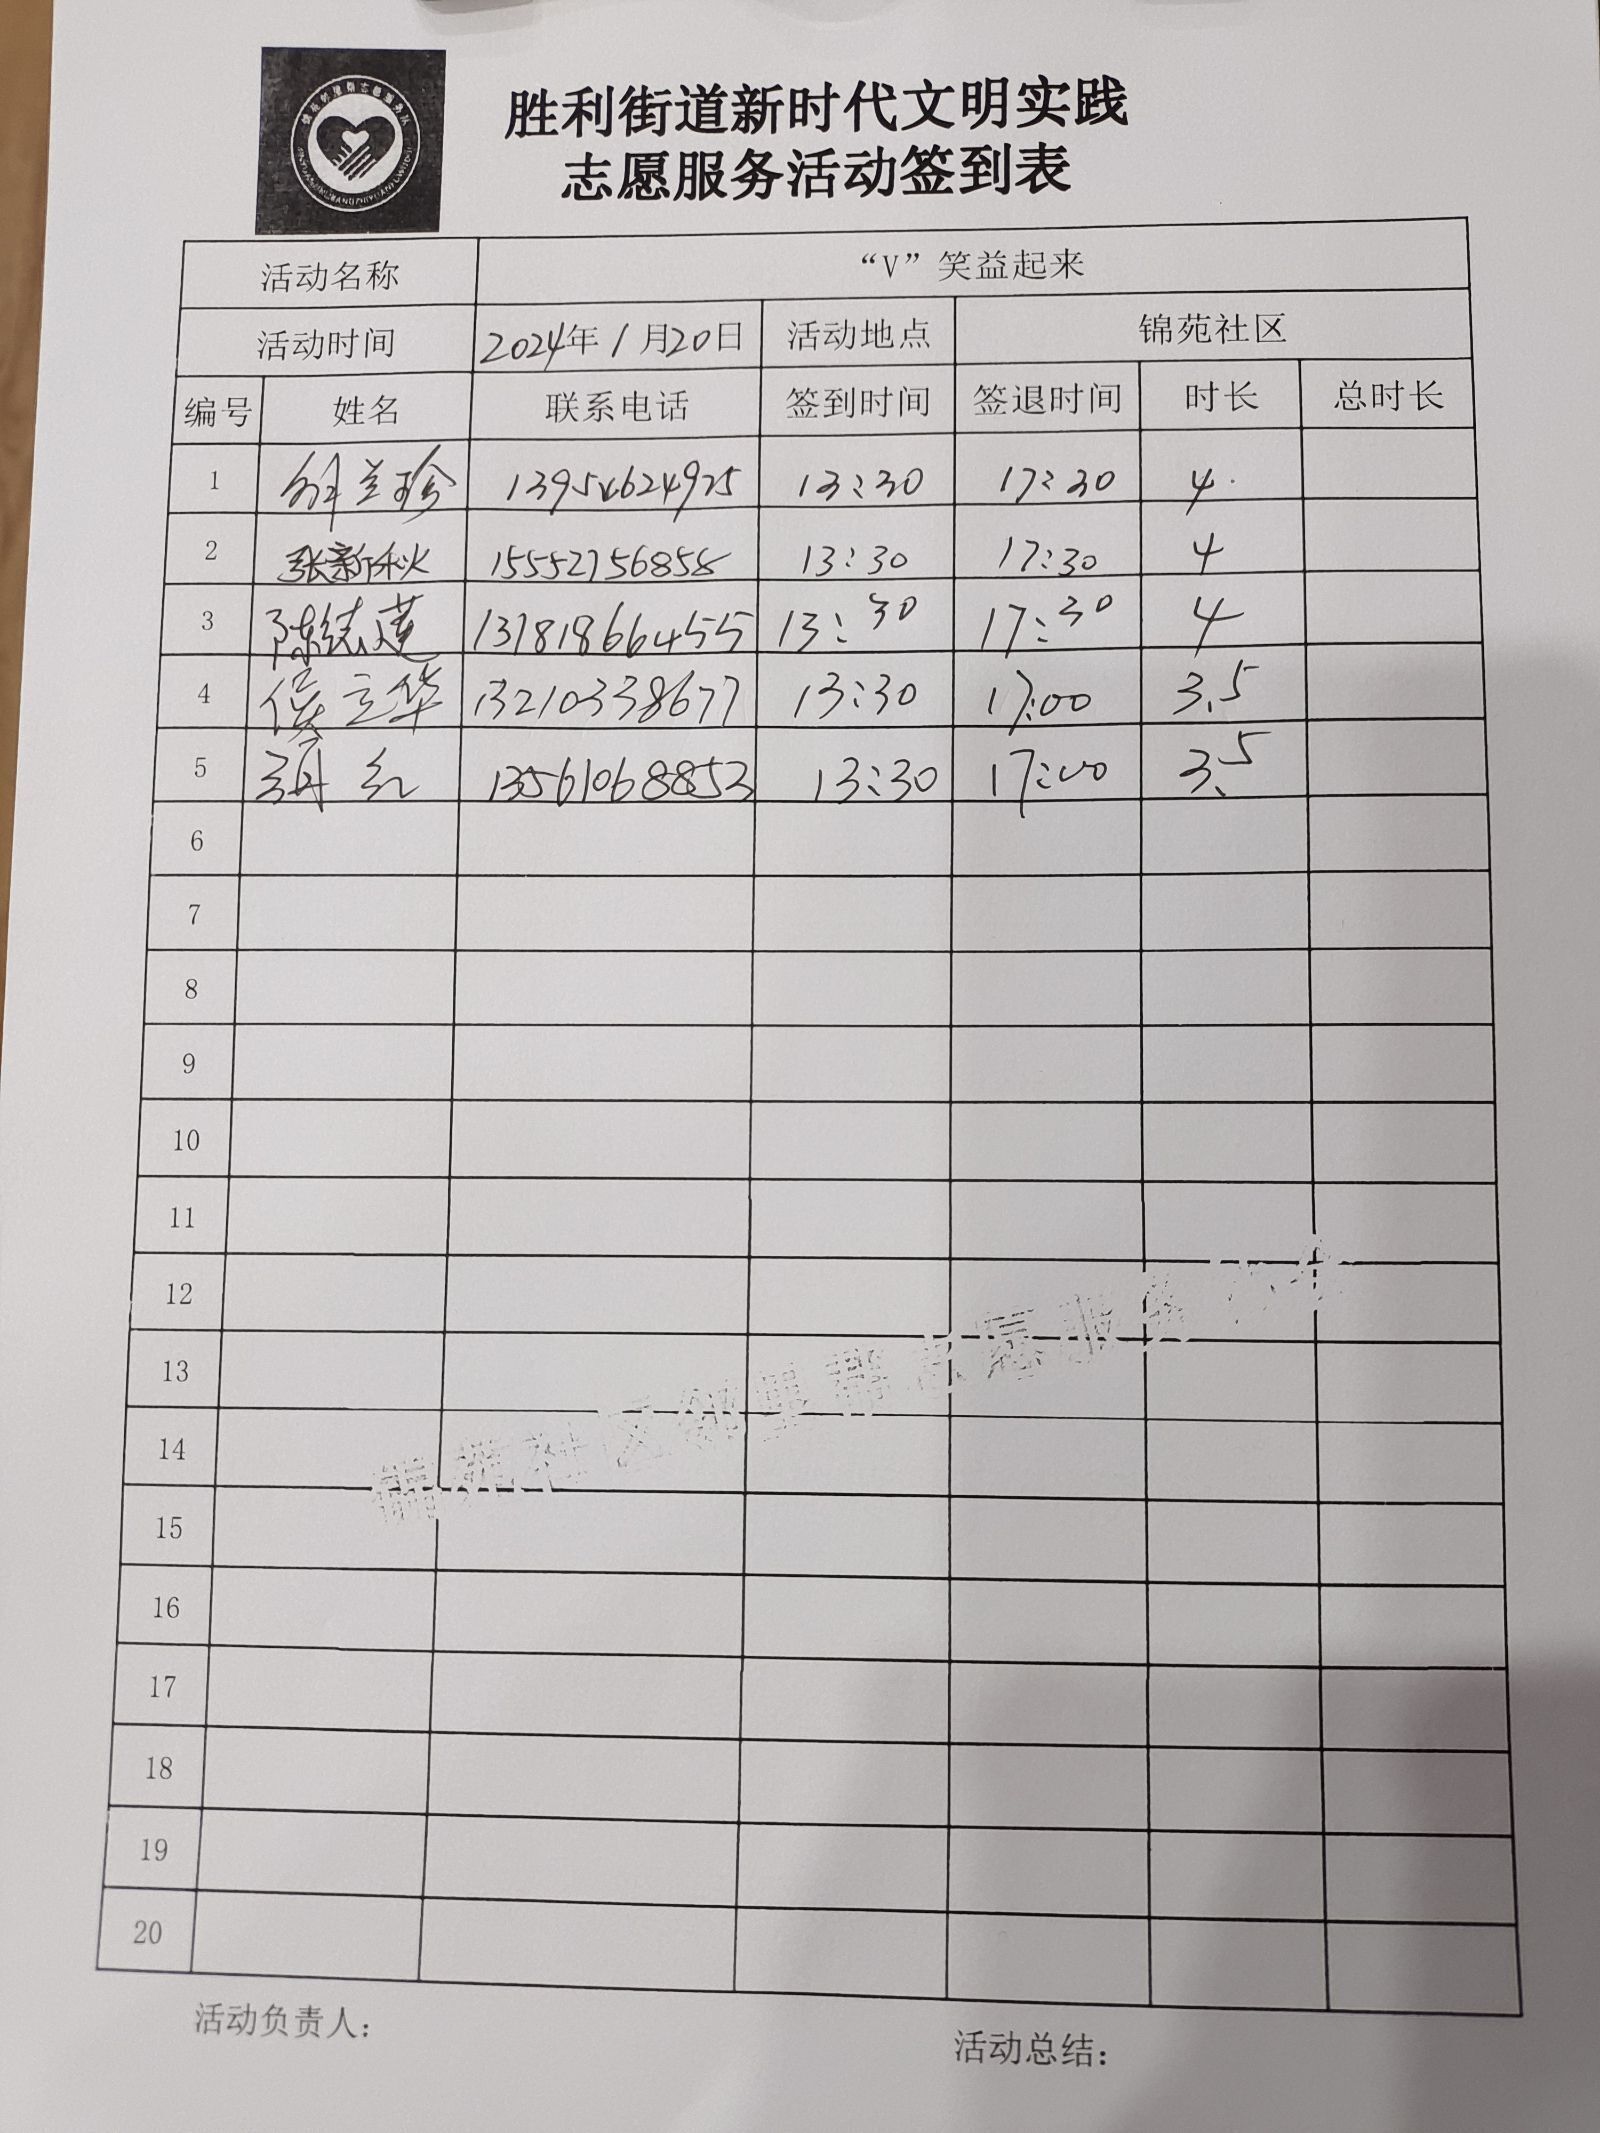 胜利街道新时代文明实践
志愿服务活动签到表
活动名称 “V”笑益起来
活动时间 2024年1月20日 活动地点 锦苑社区
编号 姓名 联系电话 签到时间 签退时间 时长 总时长
1 兰珍 13954624925 13:30 17:30 4
2 张新秋 15552756858 13:30 17:30 4
3 陈莲 13181866455 13:30 17:30 4
4 侯立华 13210338677 13:30 17:00 3.5
5 红 13561068853 13:30 17:00 3.5
6
7
8
9
10
11
12
13
14
15
16
17
18
19
20
锦苑社区邻里帮志愿服务
活动负责人：
活动总结：